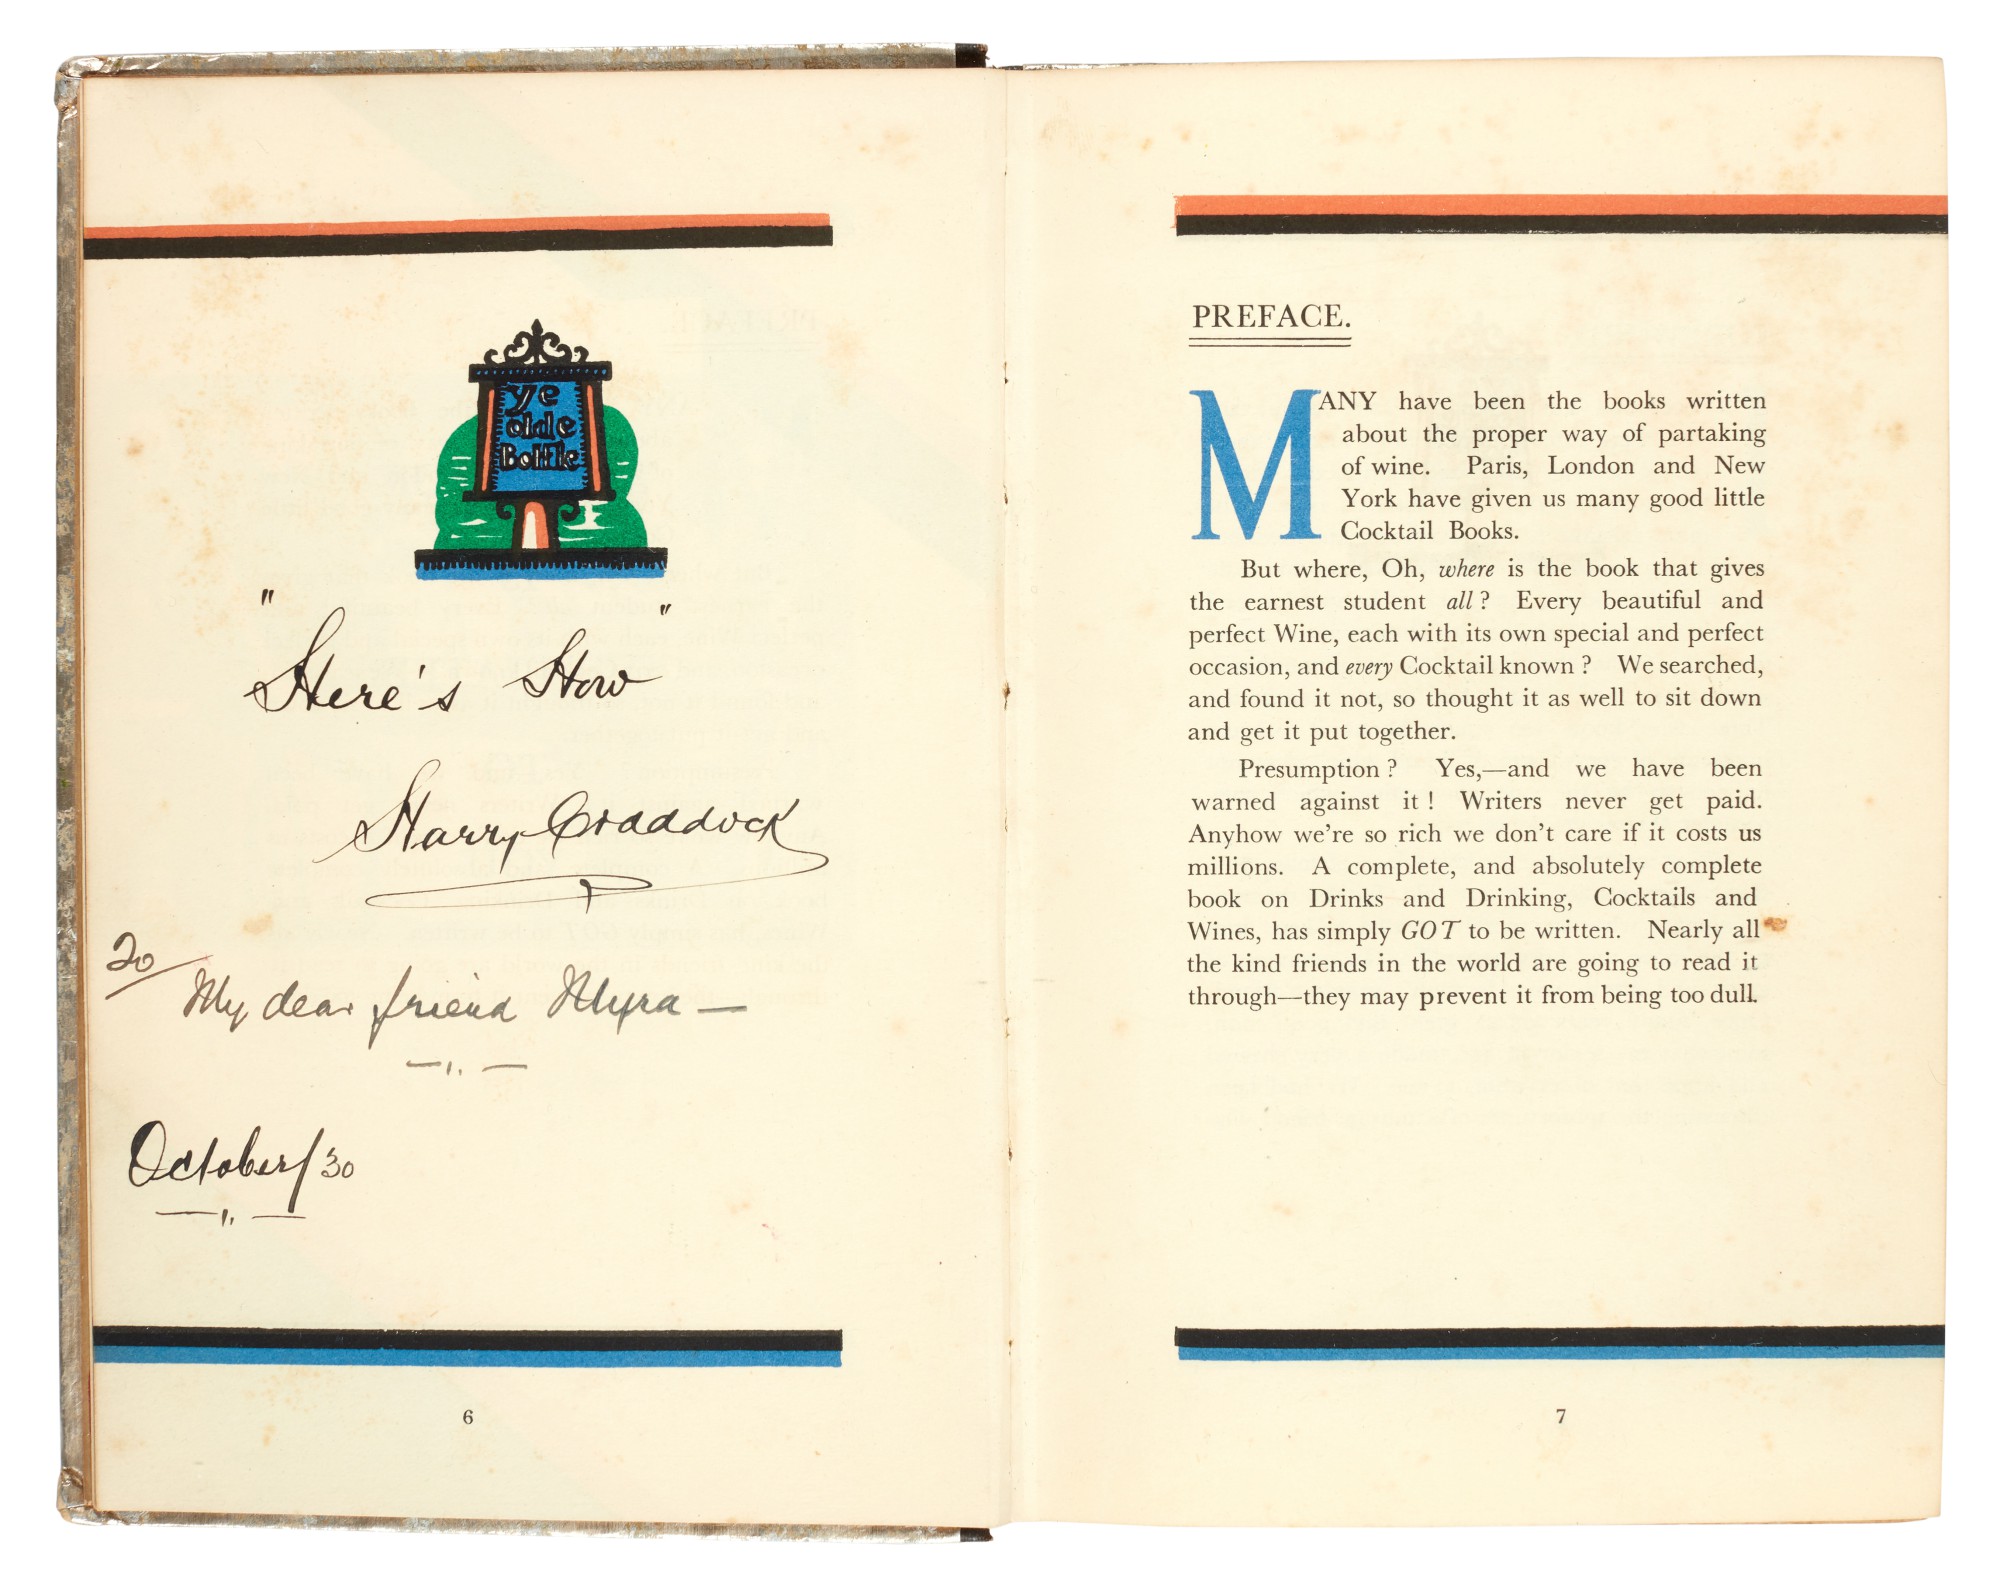 ye
olde
Bottle
"Here's How"
Harry Craddock
To/
My dear friend Myra —
October/30
6
PREFACE.
MANY have been the books written
about the proper way of partaking
of wine. Paris, London and New
York have given us many good little
Cocktail Books.
But where, Oh, where is the book that gives
the earnest student all? Every beautiful and
perfect Wine, each with its own special and perfect
occasion, and every Cocktail known? We searched,
and found it not, so thought it as well to sit down
and get it put together.
Presumption? Yes,—and we have been
warned against it! Writers never get paid.
Anyhow we're so rich we don't care if it costs us
millions. A complete, and absolutely complete
book on Drinks and Drinking, Cocktails and
Wines, has simply GOT to be written. Nearly all
the kind friends in the world are going to read it
through—they may prevent it from being too dull.
7